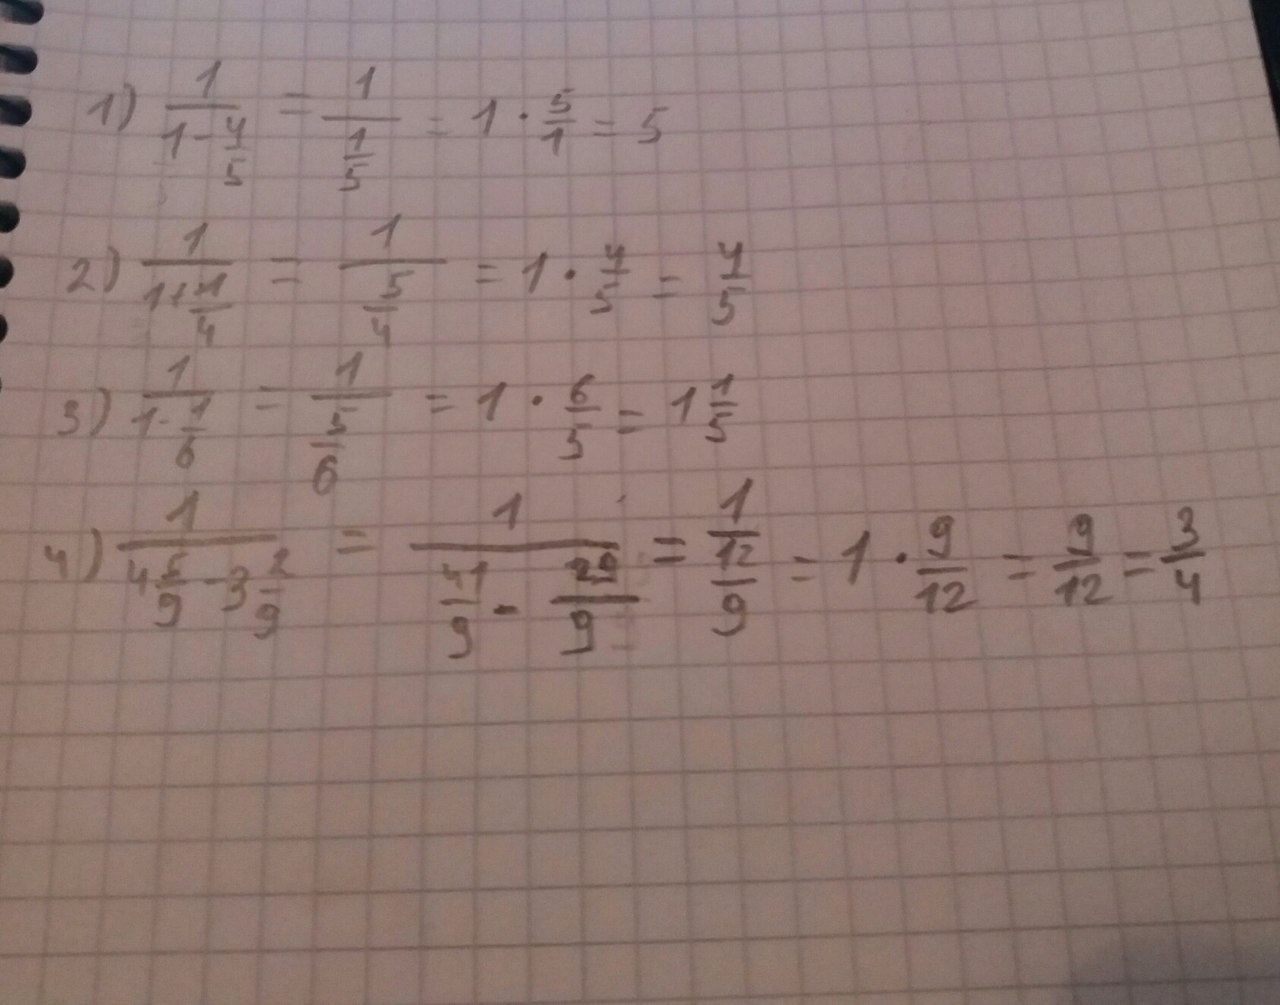 1) 1/(1-4/5) = 1/(1/5) = 1 · 5/1 = 5
2) 1/(1+1/4) = 1/(5/4) = 1 · 4/5 = 4/5
3) 1/(1-1/6) = 1/(5/6) = 1 · 6/5 = 1 1/5
4) 1/(4 5/9 - 3 2/9) = 1/(41/9 - 29/9) = 1/(12/9) = 1 · 9/12 = 9/12 = 3/4